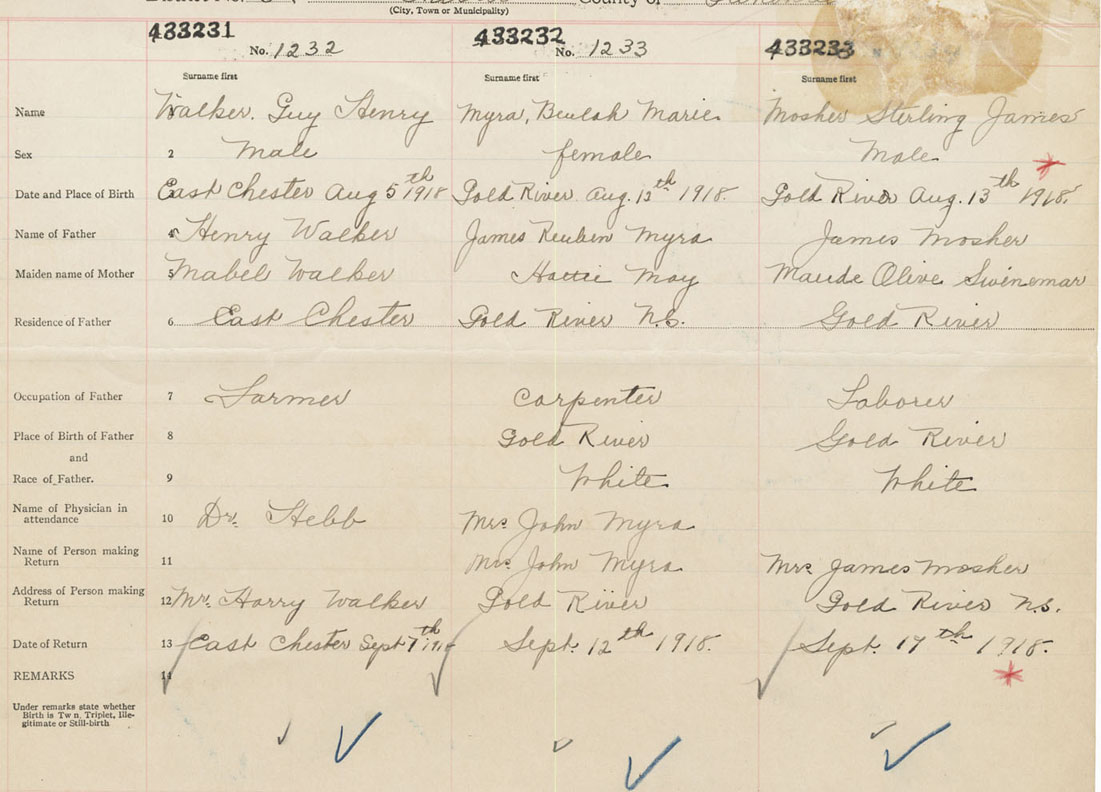 (City, Town or Municipality)
433231 433232 433233
No. 1232 No. 1233
Surname first Surname first Surname first
Name Walker. Guy Henry Myra, Beulah Marie. Mosher Sterling James
Sex 2 Male female Male
Date and Place of Birth East Chester Aug 5th 1918 Gold River Aug. 13th 1918. Gold River Aug. 13th 1918.
Name of Father 4 Henry Walker James Reuben Myra James Mosher
Maiden name of Mother 5 Mabel Walker Hattie May Maude Olive Swinemar
Residence of Father 6 East Chester Gold River N.S. Gold River
Occupation of Father 7 Farmer Carpenter Laborer
Place of Birth of Father 8 Gold River Gold River
and
Race of Father. 9 White White
Name of Physician in
attendance 10 Dr. Hebb Mrs John Myra
Name of Person making
Return 11 Mrs John Myra Mrs James Mosher
Address of Person making
Return 12 Mr. Harry Walker Gold River Gold River N.S.
Date of Return 13 East Chester Sept 7th Sept. 12th 1918. Sept. 17th 1918.
REMARKS 14
Under remarks state whether
Birth is Tw n, Triplet, Ille-
gitimate or Still-birth